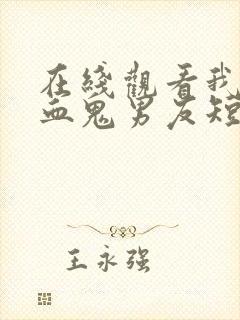 在綫觀看我
血鬼男友短
王永强